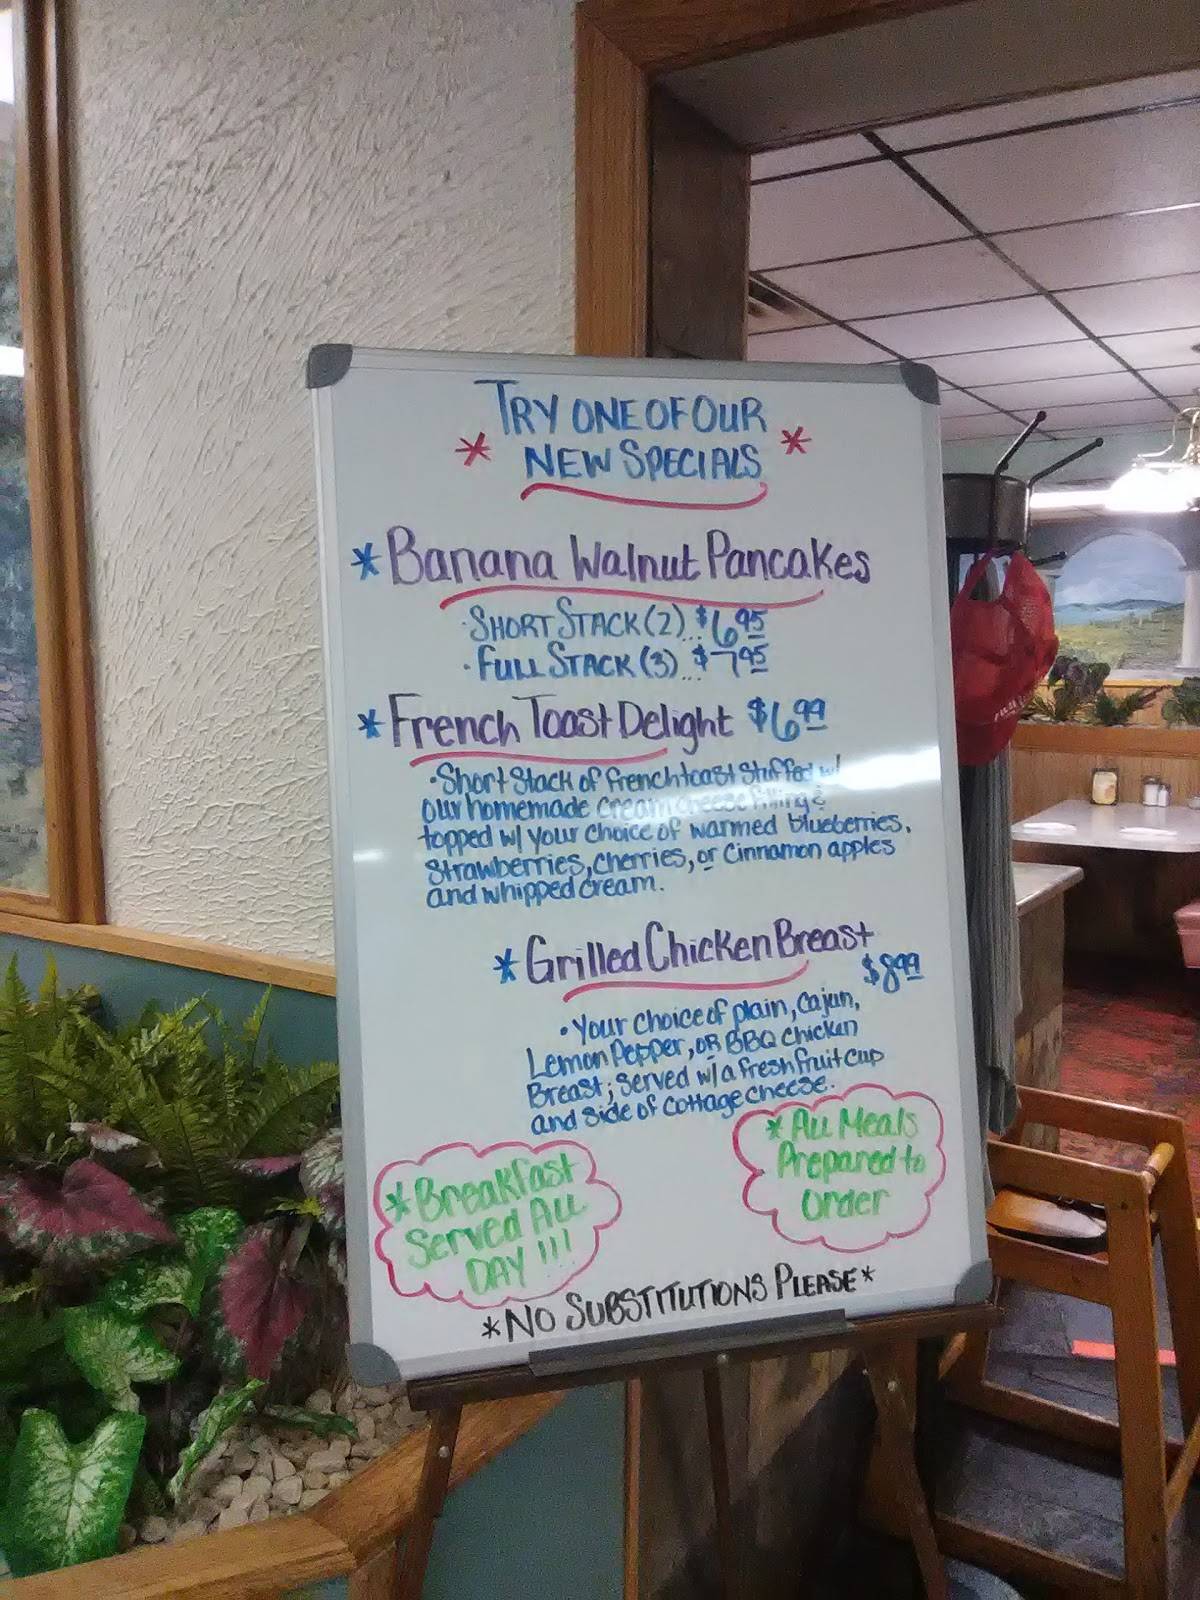 TRY ONE OF OUR
* NEW SPECIALS *
*Banana Walnut Pancakes
·SHORT STACK (2)...$6.95
·FULL STACK (3)...$7.95
*French Toast Delight $6.99
·Short Stack of french toast stuffed w/
our homemade cream cheese filling &
topped w/ your choice of warmed blueberries,
strawberries, cherries, or cinnamon apples
and whipped cream.
*Grilled Chicken Breast
$8.99
·Your choice of plain, Cajun,
Lemon Pepper, OR BBQ Chicken
Breast; served w/ a fresh fruit cup
and side of cottage cheese.
*ALL MEALS
Prepared to
order
*Breakfast
Served ALL
DAY!!!
*NO SUBSTITUTIONS PLEASE*